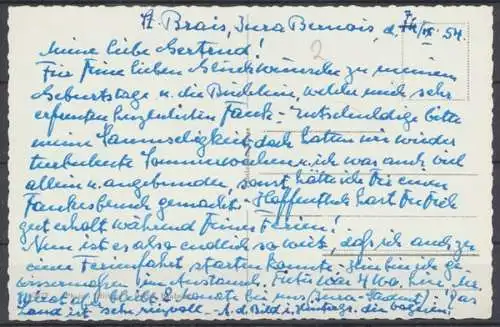 St Brais, Jura Bernois, d. 7/IX. 54.
Meine liebe Gertrud!
Für Deine lieben Glückwünsche zu meinem
Geburtstage u. die Büchlein, welche mich sehr
erfreuten herzlichsten Dank - Entschuldige bitte
meine Saumseligkeit, doch hatten wir wieder
turbulente Sommerwochen u. ich war auch viel
allein u. angebunden, sonst hätte ich Dir einen
Dankesbesuch gemacht - Hoffentlich hast Du Dich
gut erholt während Deiner Ferien!
Nun ist es also endlich so weit, daß ich auch zu
einer Ferienfahrt starten konnte - Hier bin ich ge-
wissermaßen im Ausland. war 4 Wo. hier, im
bleibt Monate bei uns Jura - Das
Land ist sehr reizvoll - A. d. Bild i. Hintergr. die
2